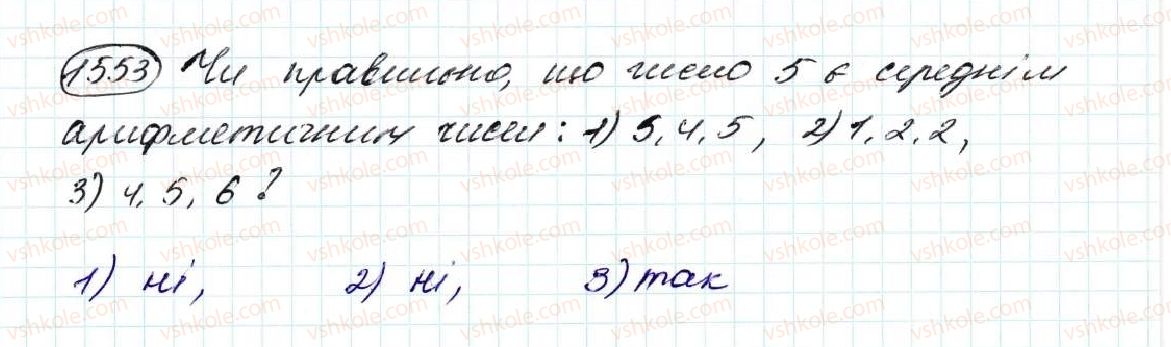 1553 Чи правильно, що число 5 є середнім
арифметичним чисел: 1) 3, 4, 5, 2) 1, 2, 2,
3) 4, 5, 6?
1) ні, 2) ні, 3) так